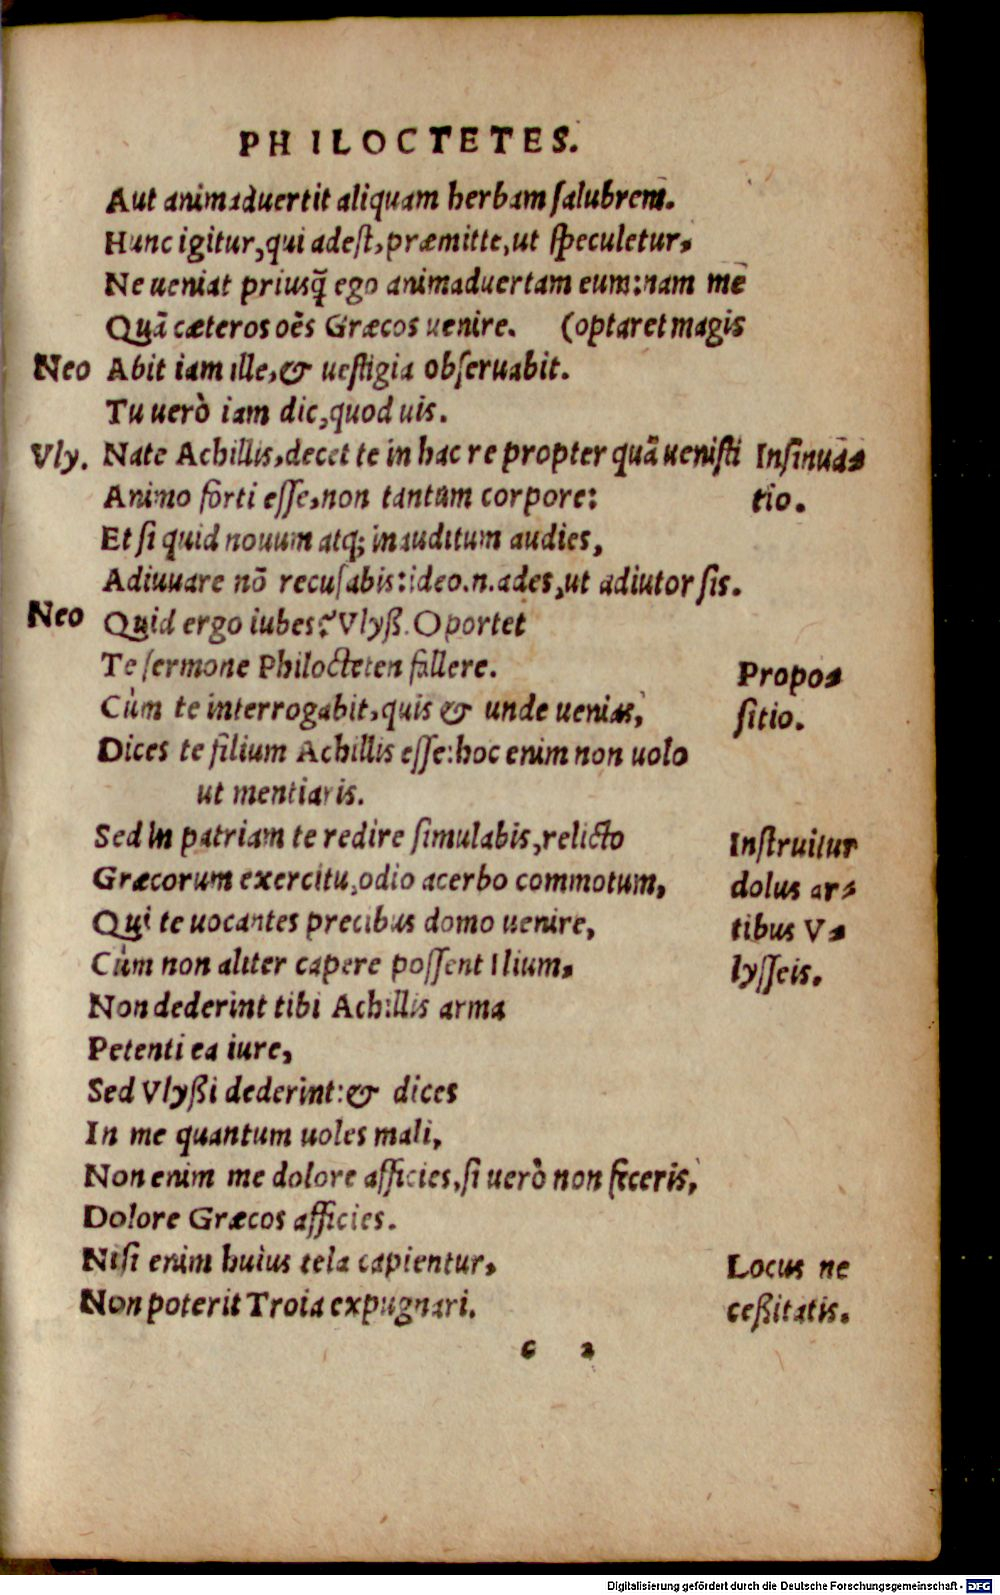 PHILOCTETES.
Aut animaduertit aliquam herbam ſalubrem.
Hunc igitur, qui adeſt, præmitte, ut ſpeculetur,
Ne ueniat priusq̃ ego animaduertam eum: nam mē
Quā cæteros oēs Græcos uenire. (optaret magis
Neo Abit iam ille, & ueſtigia obſeruabit.
Tu uerò iam dic, quod uis.
Vly. Nate Achillis, decet te in hac re propter quā ueniſti Inſinuā-
Animo forti eſſe, non tantum corpore: tio.
Et ſi quid nouum atq; inauditum audies,
Adiuuare nō recuſabis: ideo.n.ades, ut adiutor ſis.
Neo Quid ergo iubes? Vlyß. Oportet
Te ſermone Philocteten fallere. Propo-
Cùm te interrogabit, quis & unde uenias, ſitio.
Dices te filium Achillis eſſe: hoc enim non uolo
ut mentiaris.
Sed in patriam te redire ſimulabis, relicto Inſtruitur
Græcorum exercitu, odio acerbo commotum, dolus ar-
Qui te uocantes precibus domo uenire, tibus V-
Cùm non aliter capere poſſent Ilium, lyſſeis.
Non dederint tibi Achillis arma
Petenti ea iure,
Sed Vlyßi dederint: & dices
In me quantum uoles mali,
Non enim me dolore afficies, ſi uerò non feceris,
Dolore Græcos afficies.
Niſi enim huius tela capientur, Locus ne
Non poterit Troia expugnari. ceßitatis.
c 2
Digitalisierung gefördert durch die Deutsche Forschungsgemeinschaft - DFG